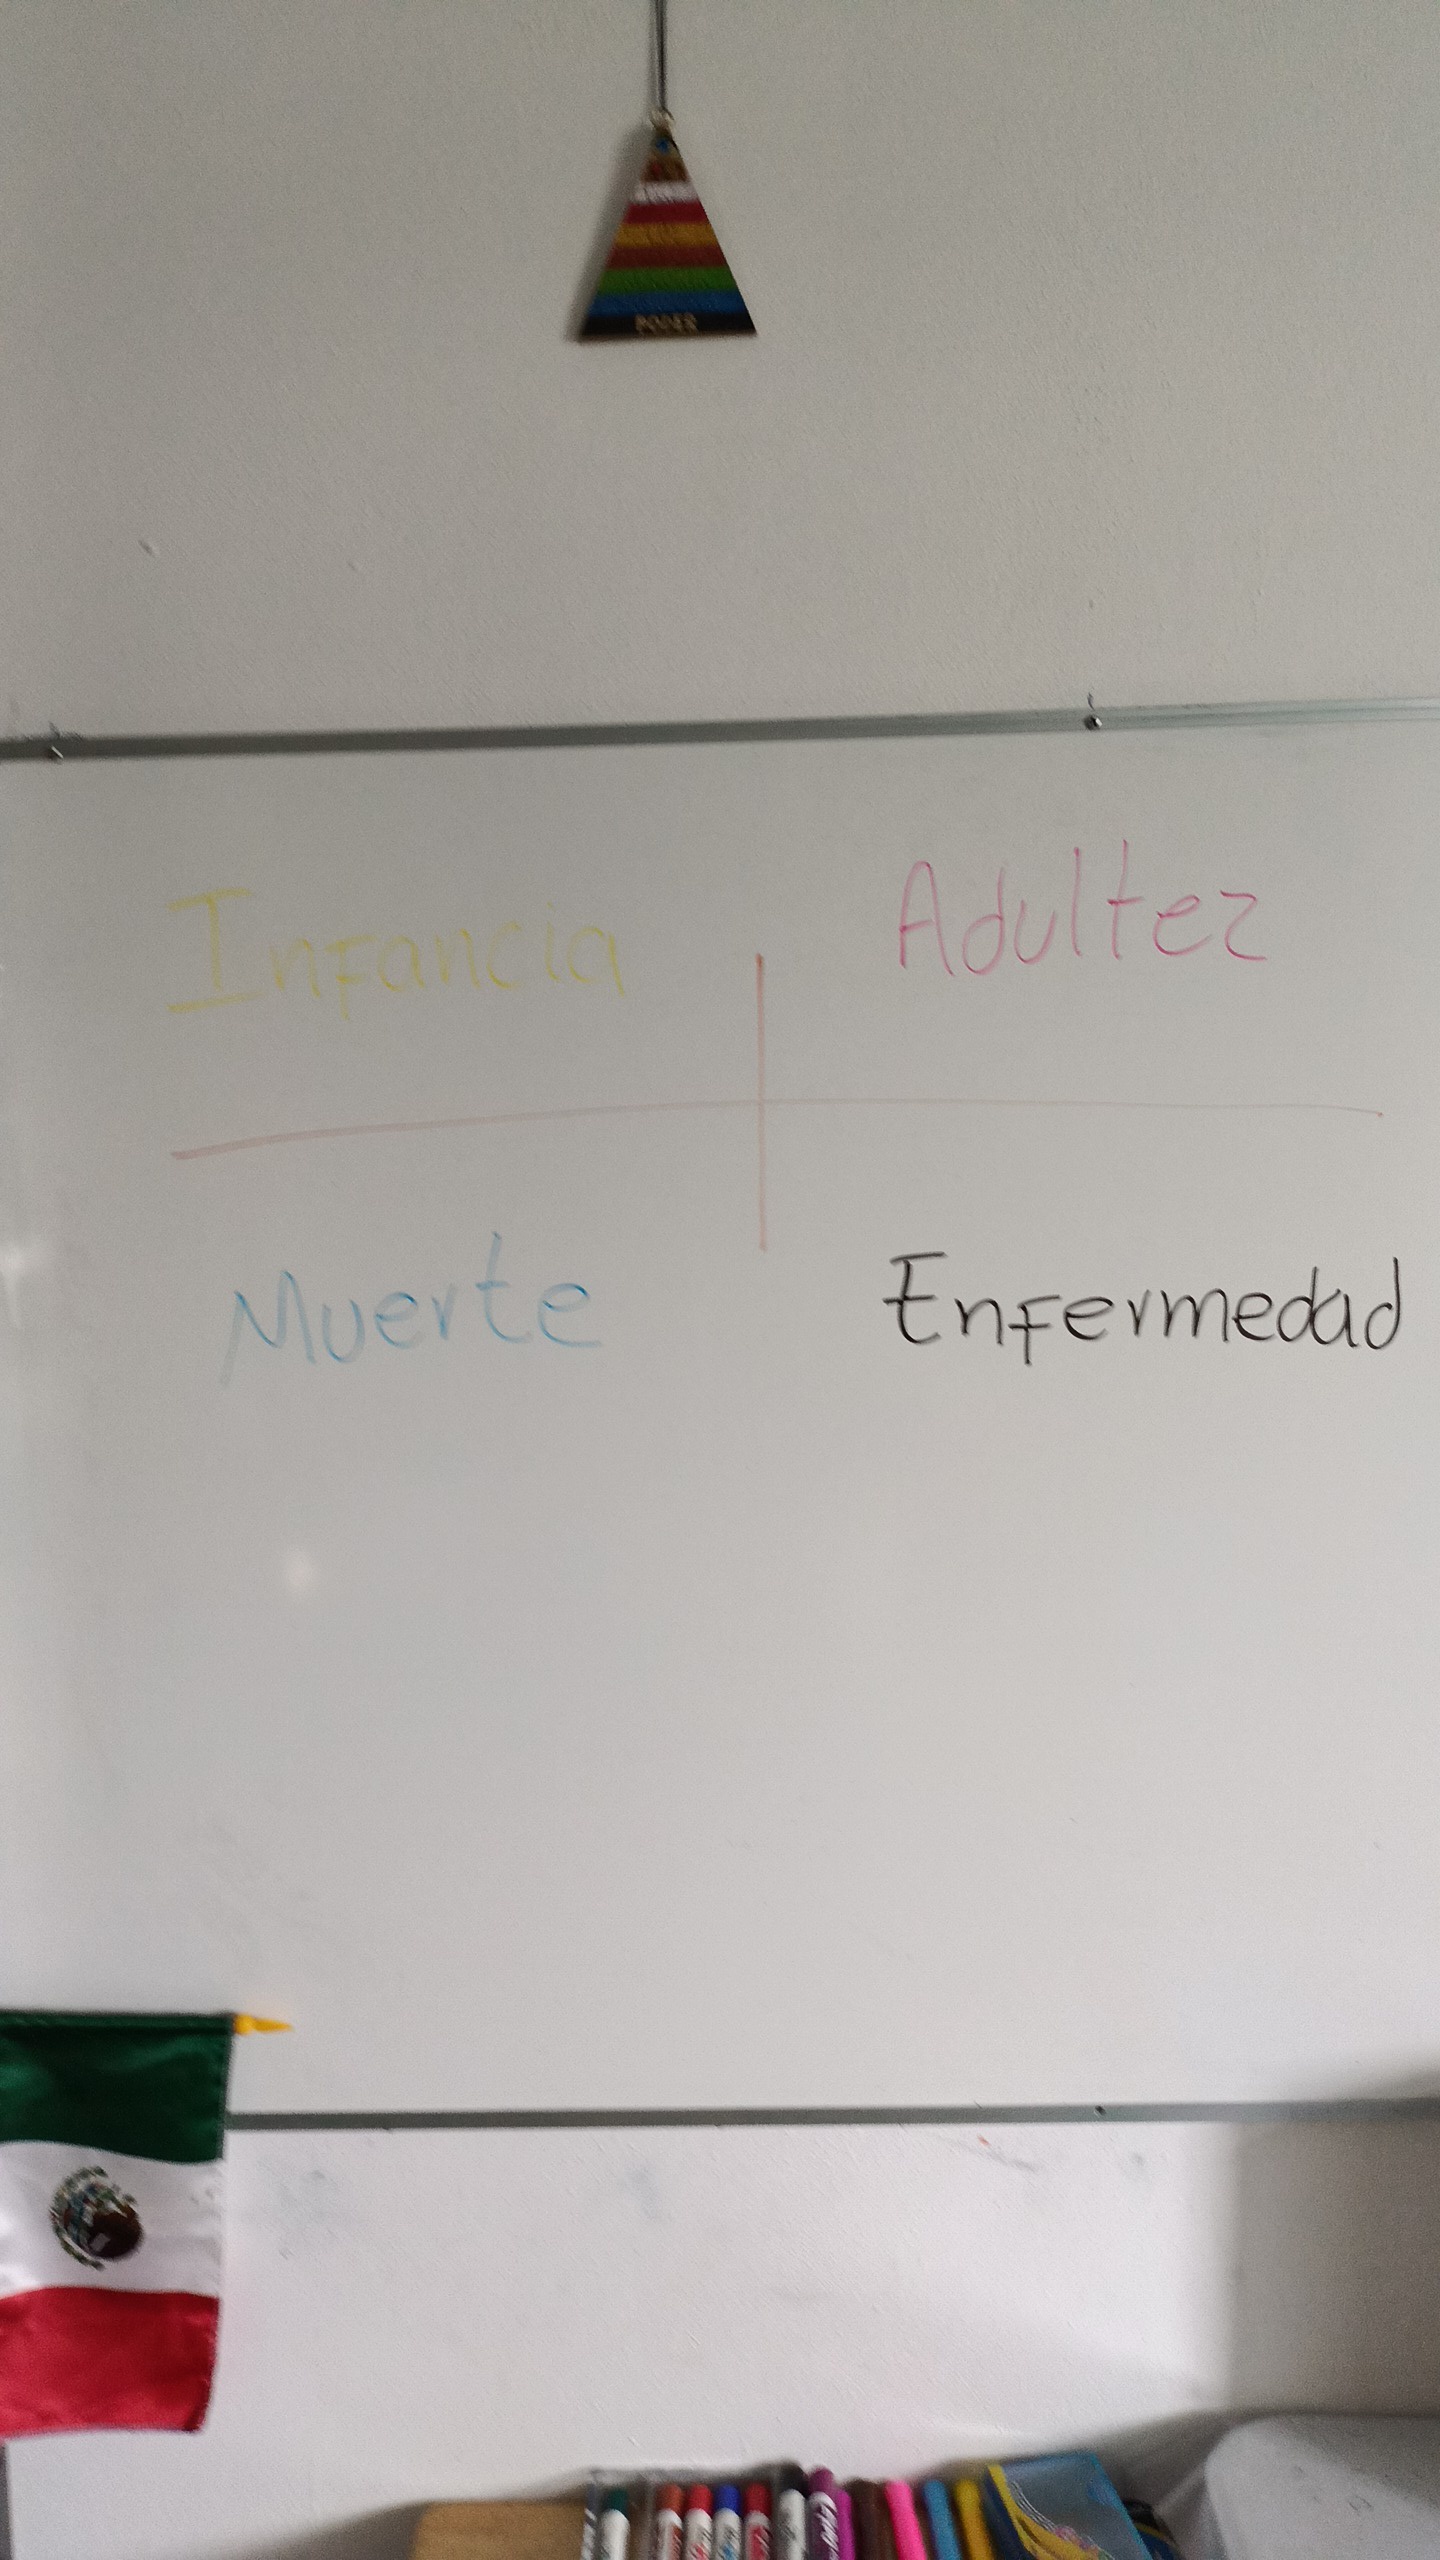 PODER
Infancia
Adultez
Muerte
Enfermedad